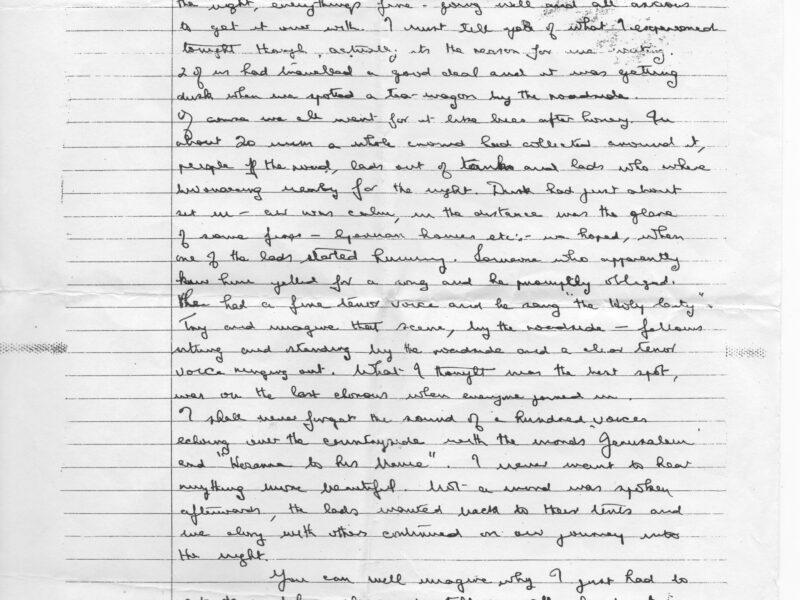 the night, everythings fine - going well and all anxious
to get it over with. I must tell you of what I experienced
tonight though, actually its the reason for me writing.
2 of us had travelled a good deal and it was getting
dusk when we spotted a tea-wagon by the roadside.
Of course we all went for it like bees after honey. In
about 20 mins a whole crowd had collected around it,
people of the road, lads out of tanks and lads who where
bivouacing nearby for the night. Dusk had just about
set in - air was calm, in the distance was the glare
of some fires - German homes etc:- we hoped, when
one of the lads started humming. Someone who apparently
knew him yelled for a song and he promptly obliged.
He had a fine tenor voice and he sang "the Holy City".
Try and imagine that scene, by the roadside - fellows
sitting and standing by the roadside and a clear tenor
voice ringing out. What I thought was the best spot,
was on the last chorous when everyone joined in.
I shall never forget the sound of a hundred voices
echoing over the countryside with the words Jerusalem
and "Hosanna to his Name". I never want to hear
anything more beautiful. Not a word was spoken
afterwards, the lads wanted back to their tents and
we along with others continued on our journey into
the night.
You can well imagine why I just had to